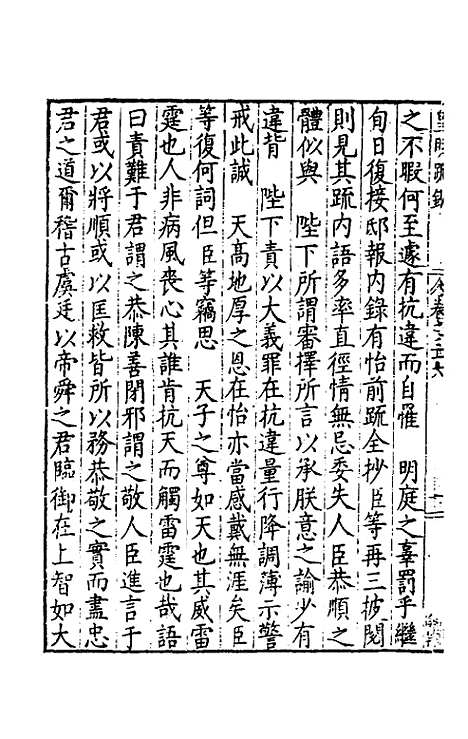 皇明疏鈔
之不暇何至遽有抗違而自罹　明庭之辜罰乎繼
旬日復接邸報内錄有怡前疏全抄臣等再三披閱
則見其疏内語多率直徑情無忌委失人臣恭順之
體似與　陛下所謂審擇所言以承朕意之諭少有
違背　陛下責以大義罪在抗違量行降調薄示警
戒此誠　天高地厚之恩在怡亦當感戴無涯矣臣
等復何詞但臣等竊思　天子之尊如天也其威雷
霆也人非病風喪心其誰肯抗天而觸雷霆也哉語
曰責難于君謂之恭陳善閉邪謂之敬人臣進言于
君或以將順或以匡救皆所以務恭敬之實而盡忠
君之道爾稽古虞廷以帝舜之君臨御在上智如大